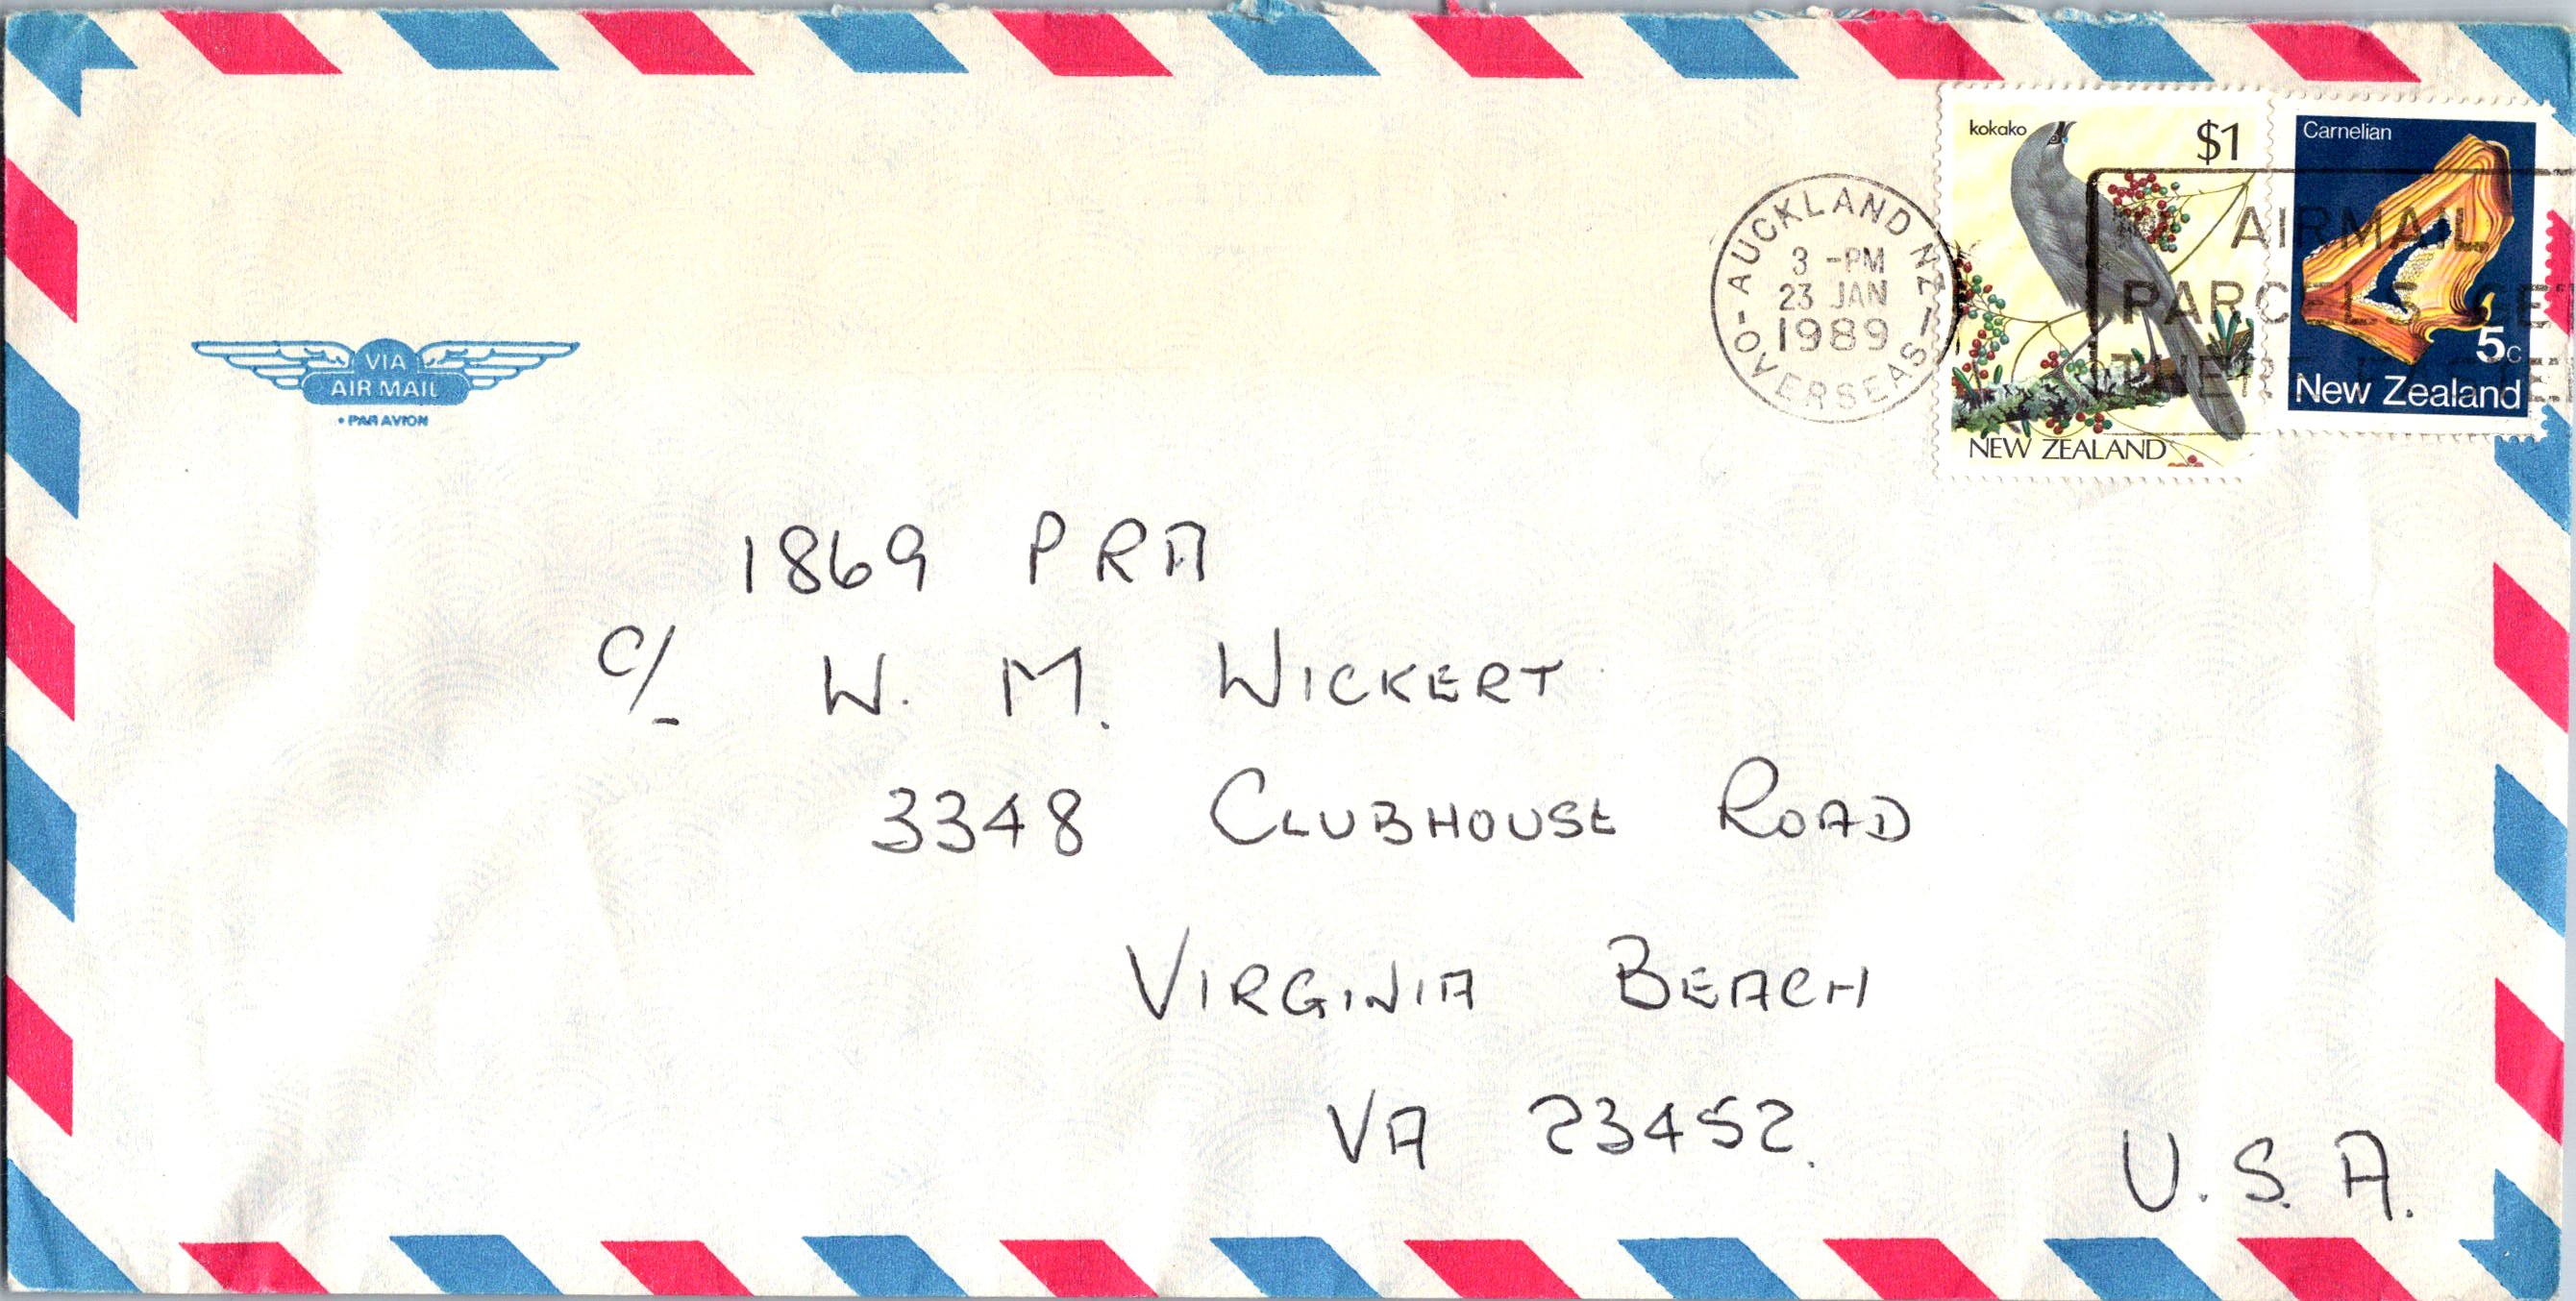 VIA
AIR MAIL
• PAR AVION
AUCKLAND N.Z. 1
3 -PM
23 JAN
1989
-OVERSEAS-
kokako
$1
NEW ZEALAND
Carnelian
5c
New Zealand
AIRMAIL
PARCELS GET
THERE
1869 PRA
C/- W. M. WICKERT
3348 CLUBHOUSE ROAD
VIRGINIA BEACH
VA 23452.
U.S.A.